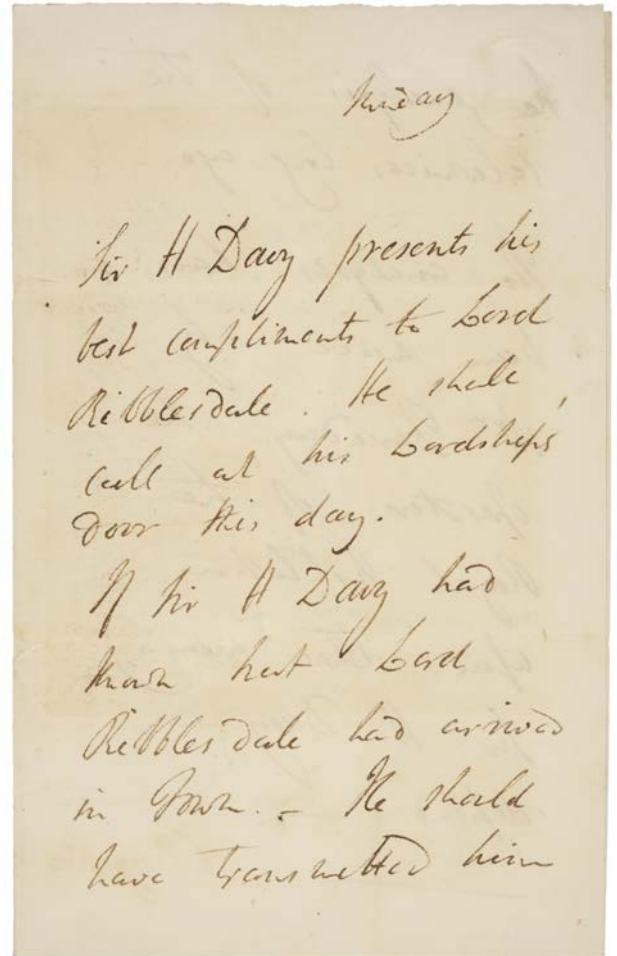 Friday
Sir H Davy presents his
best compliments to Lord
Ribblesdale. He shall
call at his Lordships
door this day.
If Sir H Davy had
known that Lord
Ribblesdale had arrived
in Town. - He should
have transmitted him